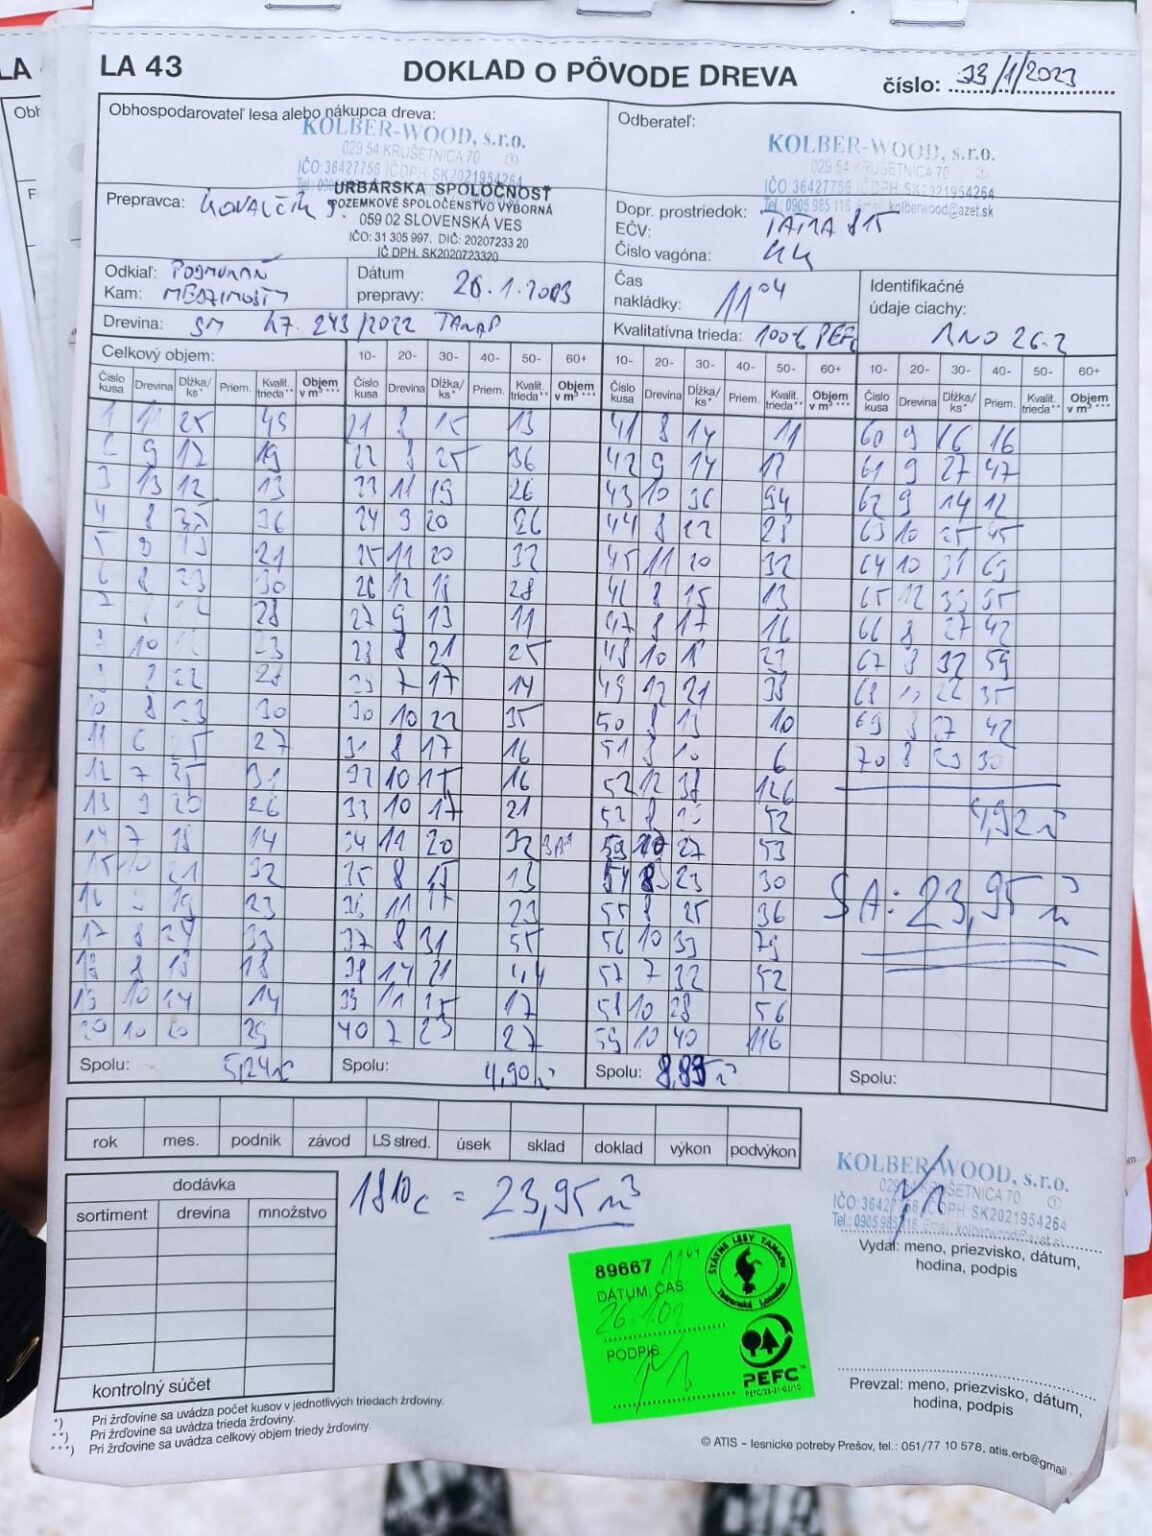 LA 43
DOKLAD O PÔVODE DREVA
číslo: 33/1/2023
Obhospodarovateľ lesa alebo nákupca dreva:
KOLBER-WOOD, s.r.o.
029 54 KRUŠETNICA 70
IČO: 36427756 IČ DPH: SK2021954264
URBÁRSKA SPOLOČNOSŤ
POZEMKOVÉ SPOLOČENSTVO VÝBORNÁ
059 02 SLOVENSKÁ VES
IČO: 31 305 997, DIČ: 20207233 20
IČ DPH. SK2020723320
Odberateľ:
KOLBER-WOOD, s.r.o.
029 54 KRUŠETNICA 70
IČO: 36427756 IČ DPH: SK2021954264
Tel.: 0905 985 116 Email: kolberwood@azet.sk
Prepravca: KOVALČÍK J.
Dopr. prostriedok: TATRA 815
EČV:
Číslo vagóna:
Odkiaľ:
Kam: MEDZIMOSTY
Dátum
prepravy: 26.1.2023
Čas
nakládky: 11 04
Identifikačné
údaje ciachy:
ÁNO 26.2
Drevina: SM 47. 243/2022 TANAP
Kvalitatívna trieda: 100% PEFC
Celkový objem: 10- 20- 30- 40- 50- 60+ 10- 20- 30- 40- 50- 60+ 10- 20- 30- 40- 50- 60+
Číslo kusa Drevina Dĺžka/ks* Priem. Kvalit. trieda** Objem v m³*** Číslo kusa Drevina Dĺžka/ks* Priem. Kvalit. trieda** Objem v m³*** Číslo kusa Drevina Dĺžka/ks* Priem. Kvalit. trieda** Objem v m³*** Číslo kusa Drevina Dĺžka/ks* Priem. Kvalit. trieda** Objem v m³***
1 11 25 49 21 8 15 13 41 8 14 11 60 9 16 16
2 9 17 19 22 8 25 36 42 9 14 12 61 9 27 47
3 13 12 13 23 11 19 26 43 10 36 94 62 9 14 12
4 8 36 24 9 20 26 44 8 22 28 63 10 25 45
5 21 25 11 20 32 45 11 20 32 64 10 31 69
6 8 23 30 26 12 18 28 46 8 15 13 65 12 55
7 28 27 9 13 11 47 8 17 16 66 8 27 42
10 23 28 8 21 25 48 10 18 67 8 32 59
22 28 29 7 17 14 49 12 21 38 68 22 35
10 8 23 30 30 10 22 35 50 8 13 10 69 8 27 42
11 6 25 27 31 8 17 16 51 8 10 6 70 8 23 30
12 7 25 31 32 10 15 16 52 12 38 126
13 9 20 26 33 10 17 21 52
4,92 m³
14 7 18 14 34 11 20 32 27 53
15 10 21 32 35 8 15 13 54 8 23 30
SA: 23,95 m³
16 19 23 36 11 17 23 55 8 25 36
17 8 24 33 37 8 31 55 56 10 33 79
18 8 18 18 38 21 44 57 7 32 52
19 10 14 14 39 11 15 17 58 10 28 56
20 10 20 29 40 7 23 27 59 10 40 116
Spolu: 5,24 m³ Spolu: 4,90 m³ Spolu: 8,89 m³ Spolu:
rok mes. podnik závod LS stred. úsek sklad doklad výkon podvýkon
dodávka
sortiment drevina množstvo
kontrolný súčet
= 23,95 m³
89667 1104
DÁTUM, ČAS
26.1.
PODPIS
ŠTÁTNE LESY TANAPu
Tatranská Lomnica
PEFC
KOLBER-WOOD, s.r.o.
029 54 KRUŠETNICA 70
IČO: 36427756 IČ DPH SK2021954264
Vydal: meno, priezvisko, dátum,
hodina, podpis
Prevzal: meno, priezvisko, dátum,
hodina, podpis
*) Pri žrďovine sa uvádza počet kusov v jednotlivých triedach žrďoviny.
**) Pri žrďovine sa uvádza trieda žrďoviny.
***) Pri žrďovine sa uvádza celkový objem triedy žrďoviny.
© ATIS – lesnícke potreby Prešov, tel.: 051/77 10 578, atis.erb@gmail